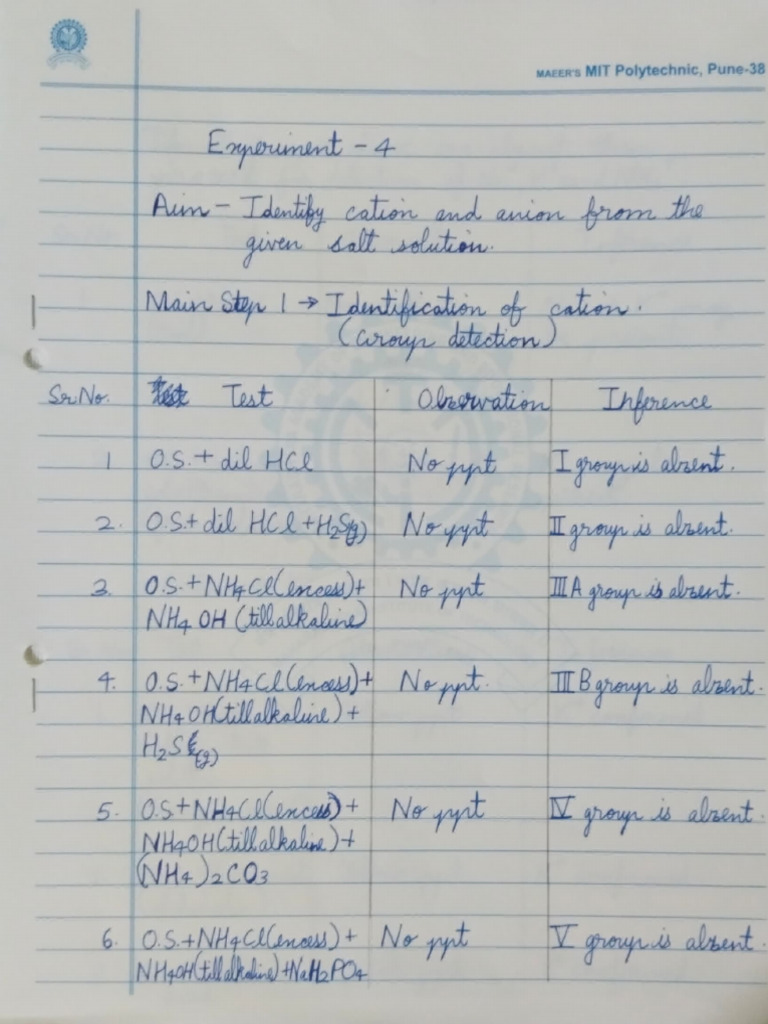 MAEER'S MIT Polytechnic, Pune-38
Experiment - 4
Aim - Identify cation and anion from the
given salt solution.
Main Step 1 → Identification of cation.
(Group detection)
Sr No. Test Observation Inference
1 O.S. + dil HCl No ppt I group is absent.
2. O.S. + dil HCl + H2S(g) No ppt II group is absent.
3. O.S. + NH4Cl (excess) + No ppt III A group is absent.
NH4 OH (till alkaline)
4. O.S. + NH4Cl (excess) + No ppt. III B group is absent.
NH4OH (till alkaline) +
H2S (g)
5. O.S + NH4Cl (excess) + No ppt IV group is absent.
NH4OH (till alkaline) +
(NH4)2CO3
6. O.S. + NH4Cl (excess) + No ppt V group is absent.
NH4OH (till alkaline) + NaH2PO4